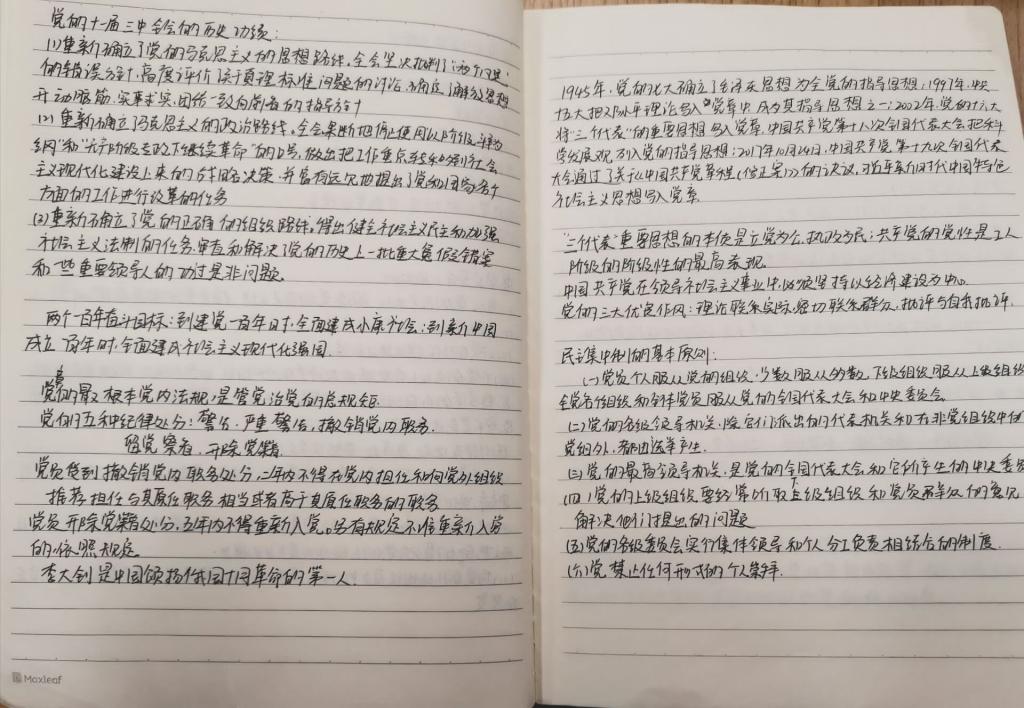 党的十一届三中全会的历史功绩:
(1)重新确立了党的马克思主义的思想路线。全会坚决批判了"两个凡是"
的错误方针,高度评价关于真理标准问题的讨论,确定了解放思想
开动脑筋、实事求实、团结一致向前看的指导方针
(2)重新确立了马克思主义的政治路线。全会果断地停止使用以阶级斗争为
纲"和"无产阶级专政下继续革命"的口号,做出把工作重点转移到社会
主义现代化建设上来的战略决策,并富有远见地提出了党和国家各个
方面的工作进行改革的任务
(3)重新确立了党的正确的组织路线,得出健全社会主义民主和加强
社会主义法制的任务,审查和解决了党的历史上一批重大冤假错案
和一些重要领导人的功过是非问题。
两个百年奋斗目标:到建党一百年时,全面建成小康社会;到新中国
成立一百年时,全面建成社会主义现代化强国.
党的最根本党内法规,是管党治党的总规矩.
党的五种纪律处分:警告、严重警告、撤销党内职务、
留党察看、开除党籍
党员受到撤销党内职务处分,二年内不得在党内担任和向党外组织
推荐担任与其原任职务相当或者高于其原任职务的职务
党员开除党籍处分,五年内不得重新入党。另有规定不准重新入党
的,依照规定
李大钊是中国颂扬俄国十月革命的第一人.
Maxleaf
1945年,党的七大确立了毛泽东思想为全党的指导思想;1997年,中共
十五大把邓小平理论写入党章中,成为其指导思想之一;2002年,党的十六大
将"三个代表"的重要思想写入党章,中国共产党第十八次全国代表大会把科
学发展观列入党的指导思想;2017年10月24日,中国共产党第十九次全国代表
大会通过了关于《中国共产党章程(修正案)》的决议,习近平新时代中国特色
社会主义思想写入党章
"三个代表"重要思想的本质是立党为公、执政为民;共产党的党性是工人
阶级的阶级性的最高表现
中国共产党在领导社会主义事业中,必须坚持以经济建设为中心
党的三大优良作风:理论联系实际、密切联系群众、批评与自我批评.
民主集中制的基本原则:
(一)党员个人服从党的组织,少数服从多数,下级组织服从上级组织
全党各个组织和全体党员服从党的全国代表大会和中央委员会
(二)党的各级领导机关,除它们派出的代表机关和在非党组织中的
党组外,都由选举产生
(三)党的最高领导机关,是党的全国代表大会和它所产生的中央委员
(四)党的上级组织要经常听取下级组织和党员群众的意见
解决他们提出的问题
(五)党的各级委员会实行集体领导和个人分工负责相结合的制度.
(六)党禁止任何形式的个人崇拜.